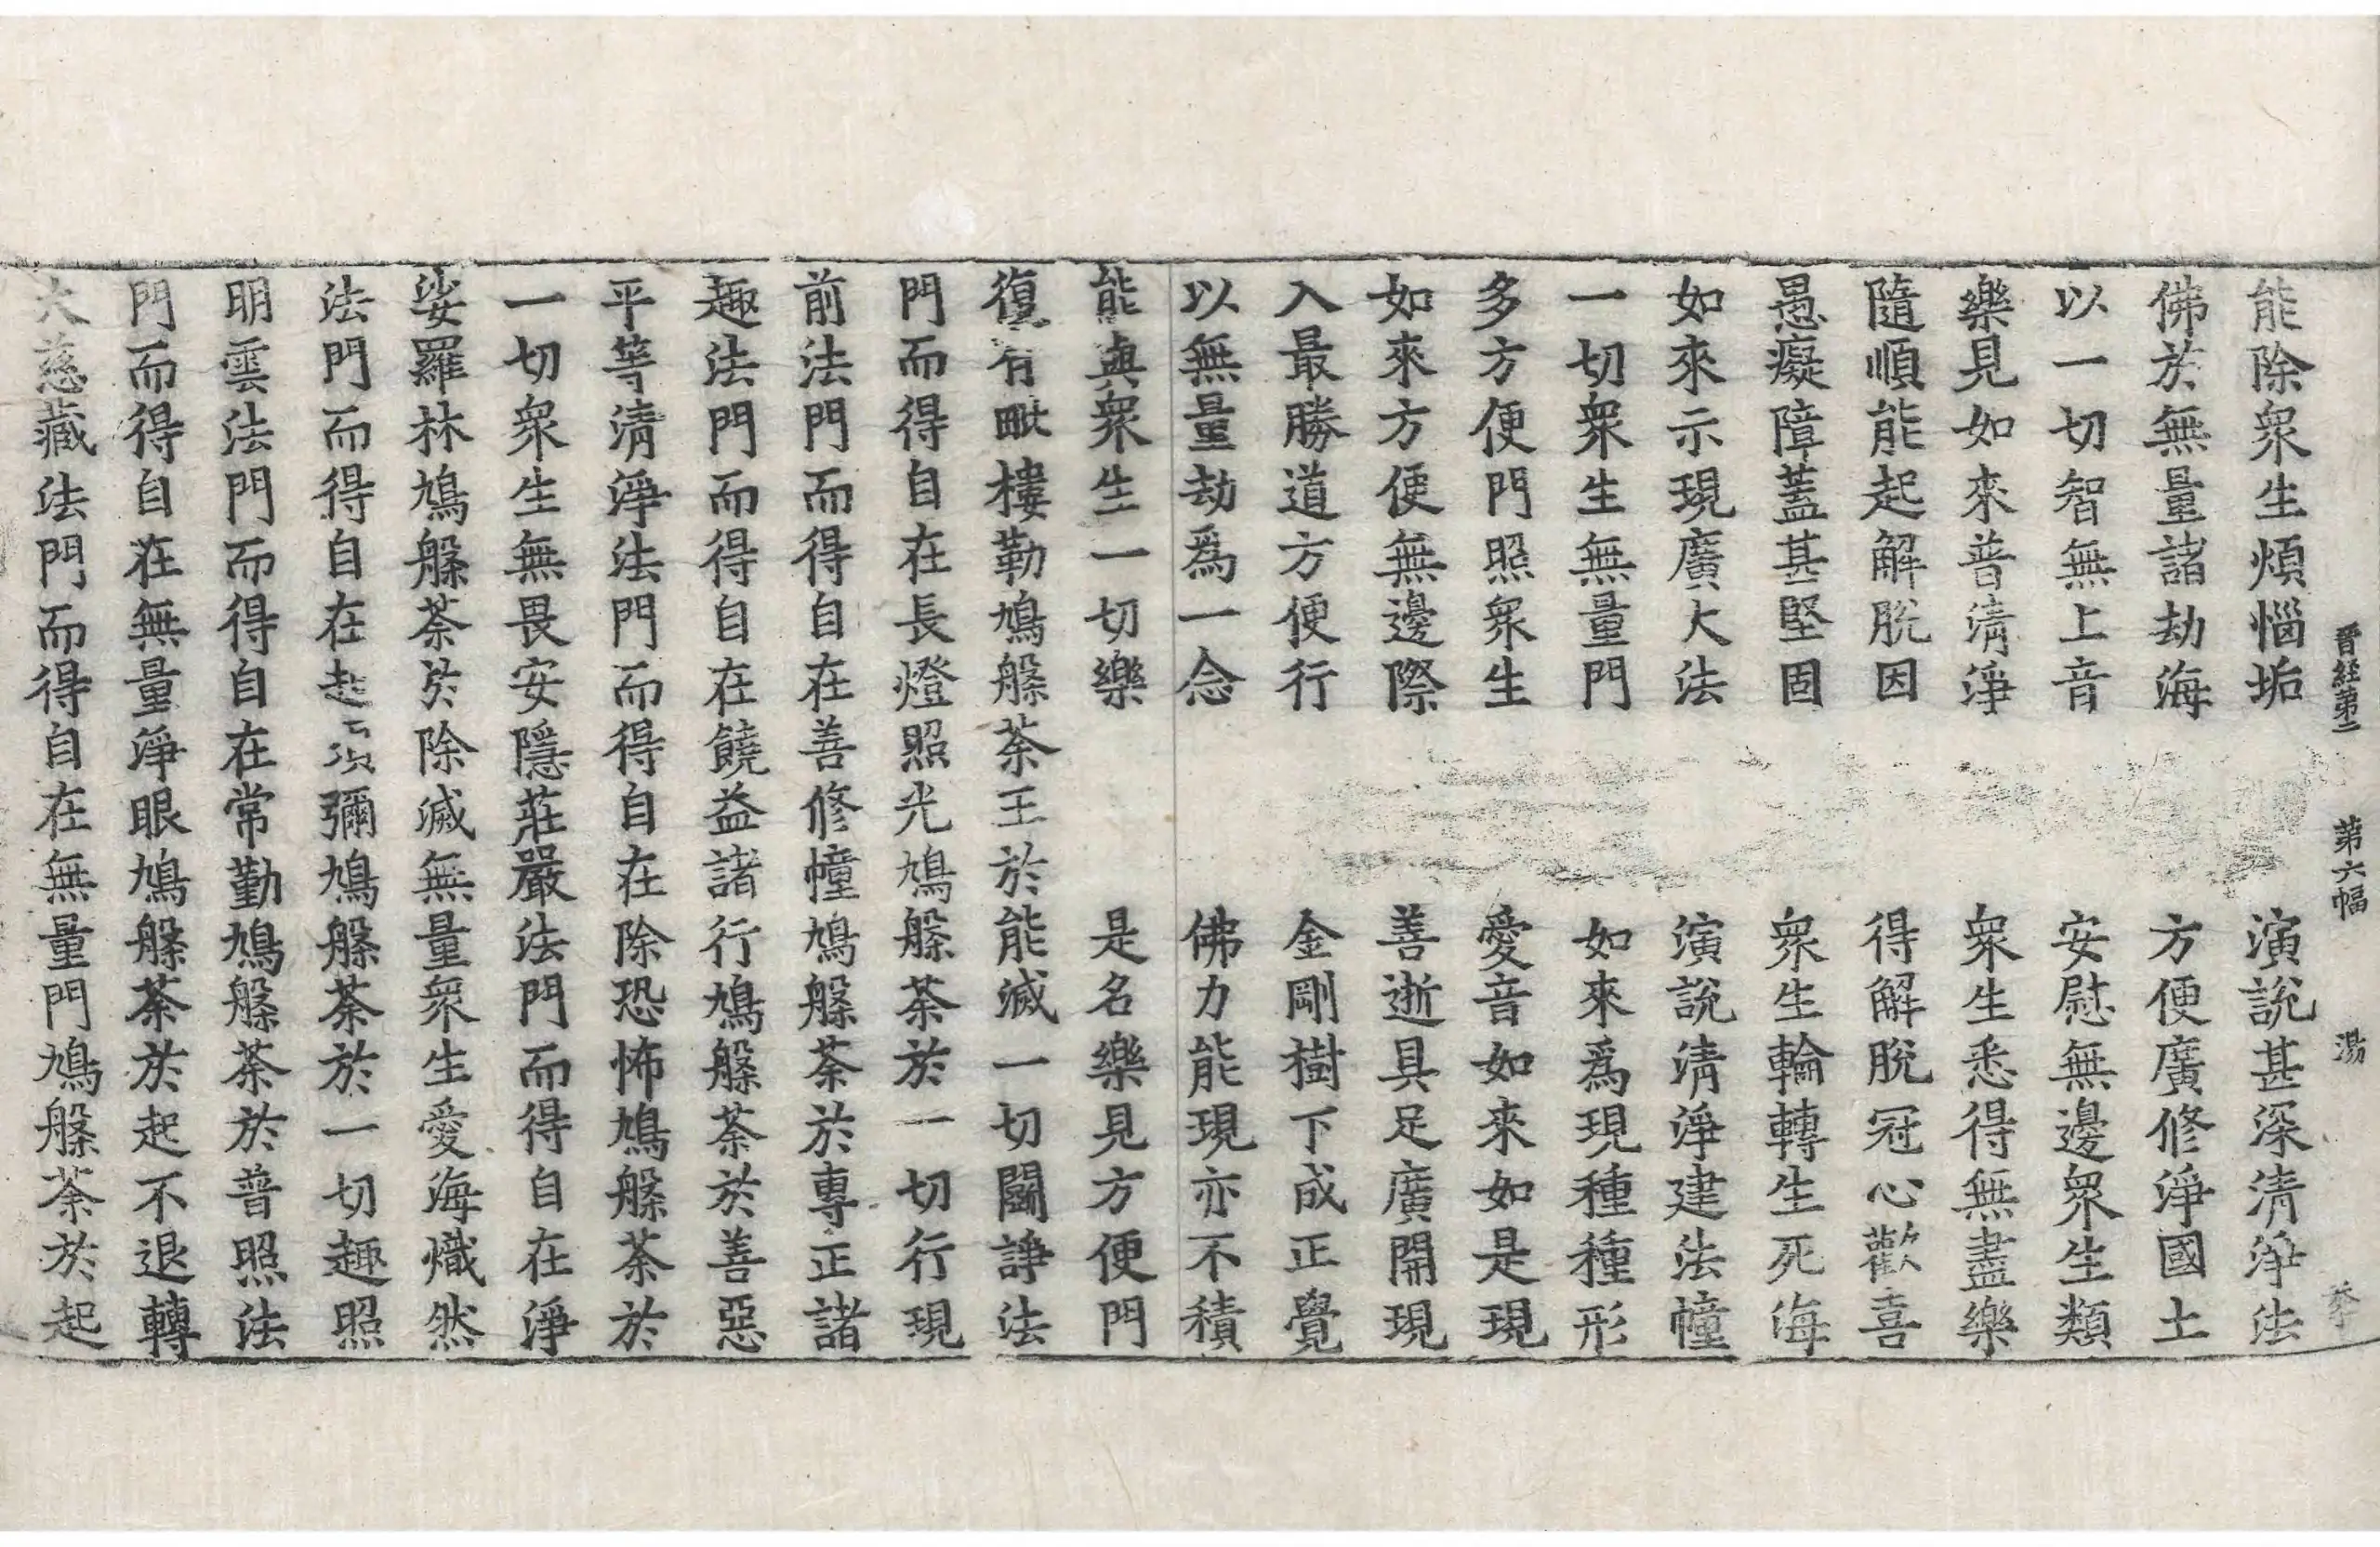 晉經第二　第六幅　湯
能除衆生煩惱垢　演說甚深清淨法
佛於無量諸劫海　方便廣修淨國土
以一切智無上音　安慰無邊衆生類
樂見如來普清淨　衆生悉得無盡樂
隨順能起解脫因　得解脫冠心歡喜
愚癡障蓋甚堅固　衆生輪轉生死海
如來示現廣大法　演說清淨建法幢
一切衆生無量門　如來爲現種種形
多方便門照衆生　愛音如來如是現
如來方便無邊際　善逝具足廣開現
入最勝道方便行　金剛樹下成正覺
以無量劫爲一念　佛力能現亦不積
能與衆生一切樂　是名樂見方便門
復有毗樓勒鳩槃荼王於能滅一切鬪諍法
門而得自在長燈照光鳩槃荼於一切行現
前法門而得自在善修幢鳩槃荼於專正諸
趣法門而得自在饒益諸行鳩槃荼於善惡
平等清淨法門而得自在除恐怖鳩槃荼於
一切衆生無畏安隱莊嚴法門而得自在淨
娑羅林鳩槃荼於除滅無量衆生愛海熾然
法門而得自在起須彌鳩槃荼於一切趣照
明雲法門而得自在常勤鳩槃荼於普照法
門而得自在無量淨眼鳩槃荼於起不退轉
大慈藏法門而得自在無量門鳩槃荼於起